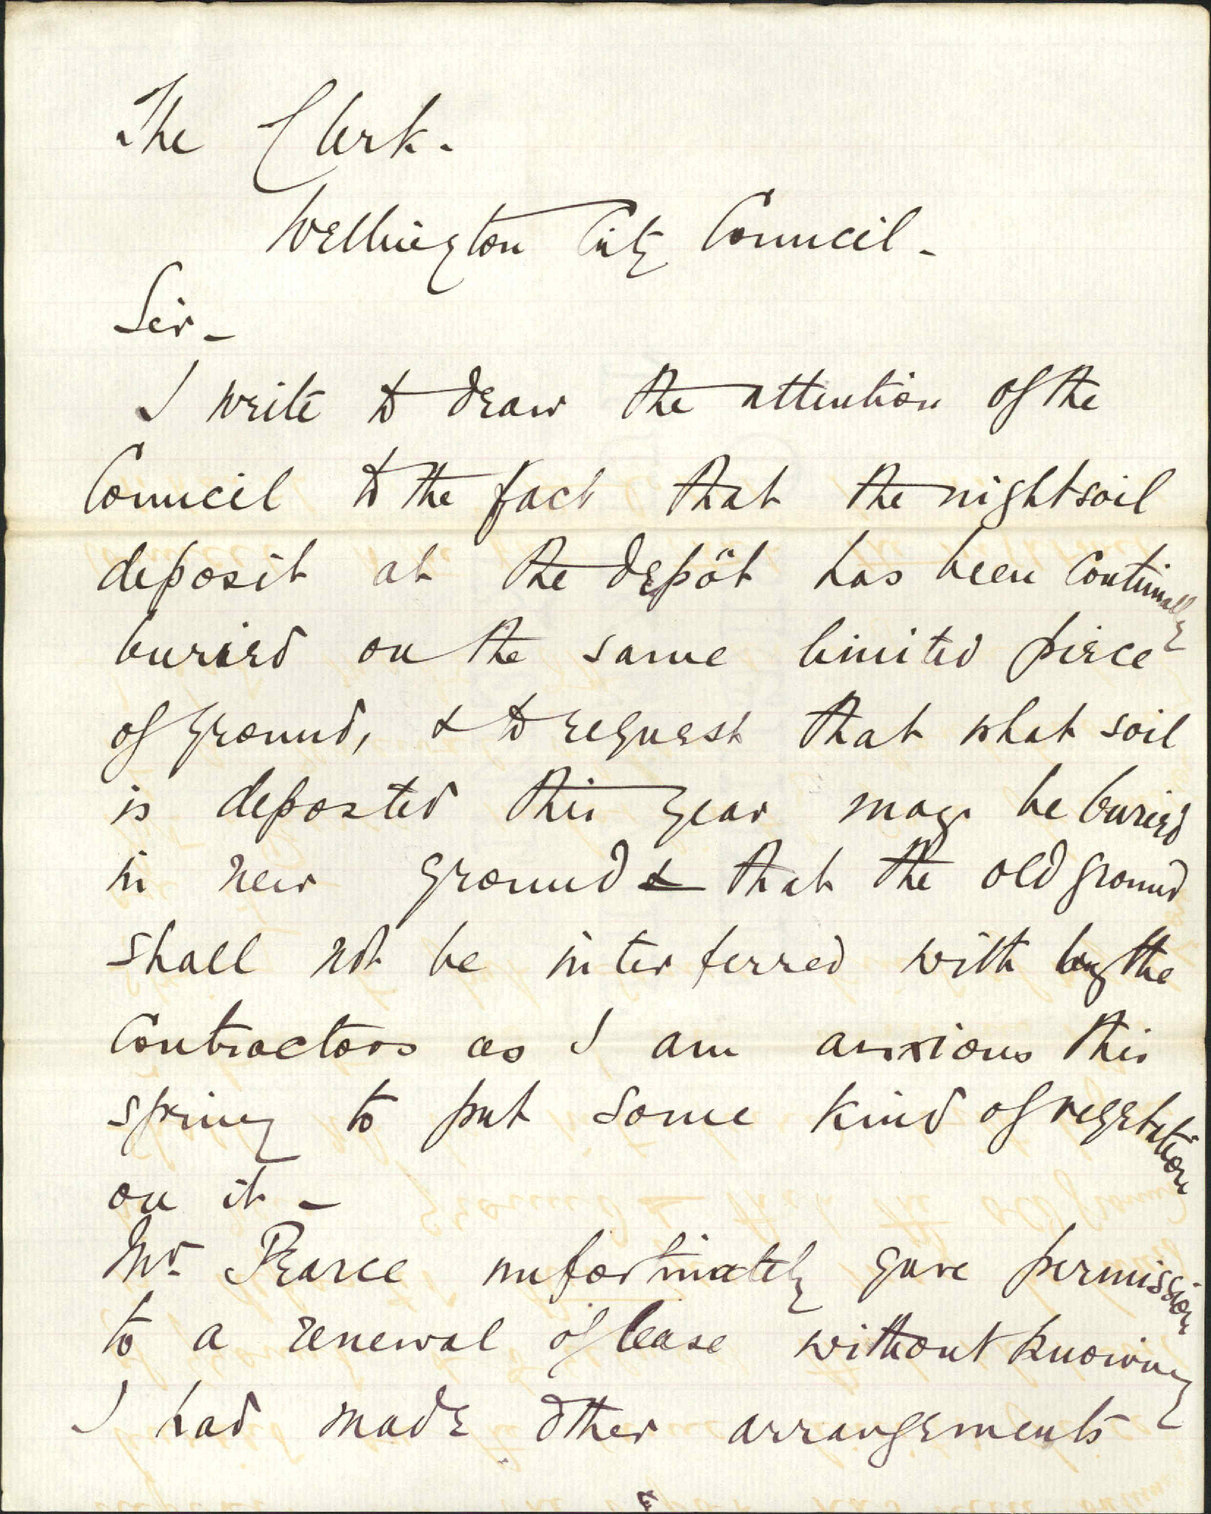 The Clerk.
Wellington City Council.
Sir -
I write to draw the attention of the
Council to the fact that the nightsoil
deposit at the depôt has been continually
buried on the same limited piece
of ground, & to request that what soil
is deposted this year may be buried
in new ground & that the old ground
shall not be interferred with by the
Contractors as I am anxious this
spring to put some kind of vegetation
on it -
Mr. Pearce unfortunately gave permission
to a renewal of lease without knowing
I had made other arrangements